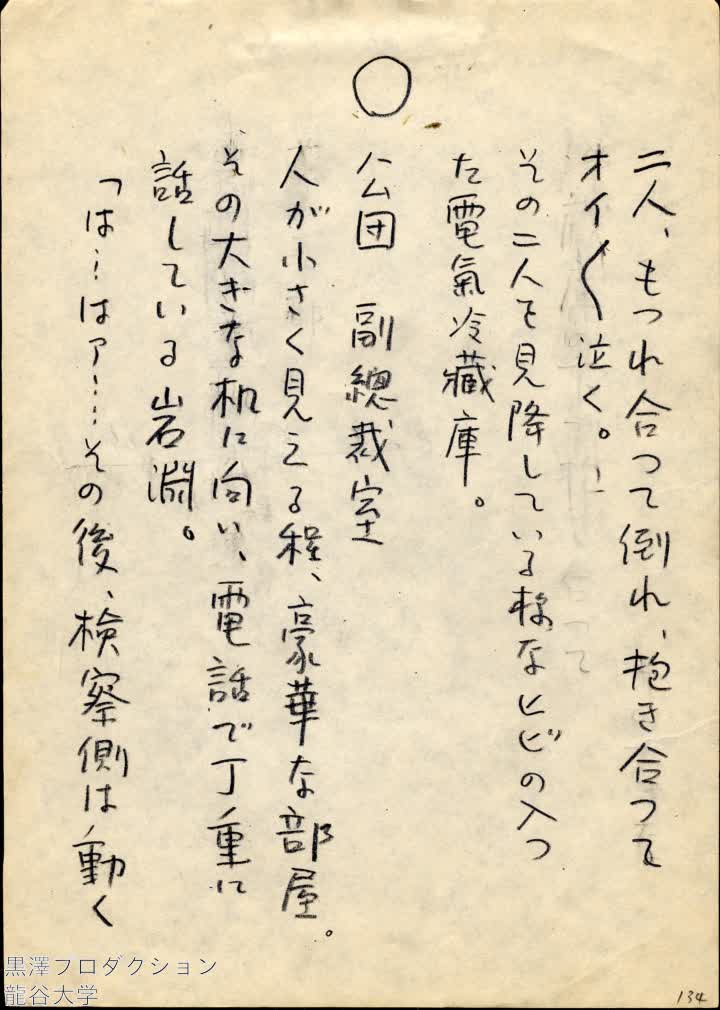 ○
二人、もつれ合つて倒れ、抱き合つて
オイ〱泣く。
その二人を見降している様なヒビの入つ
た電氣冷藏庫。
公団　副總裁室
人が小さく見える程、豪華な部屋。
その大きな机に向い、電話で丁重に
話している岩淵。
「は…はァ……その後、検察側は動く
黒澤プロダクション
龍谷大学
134